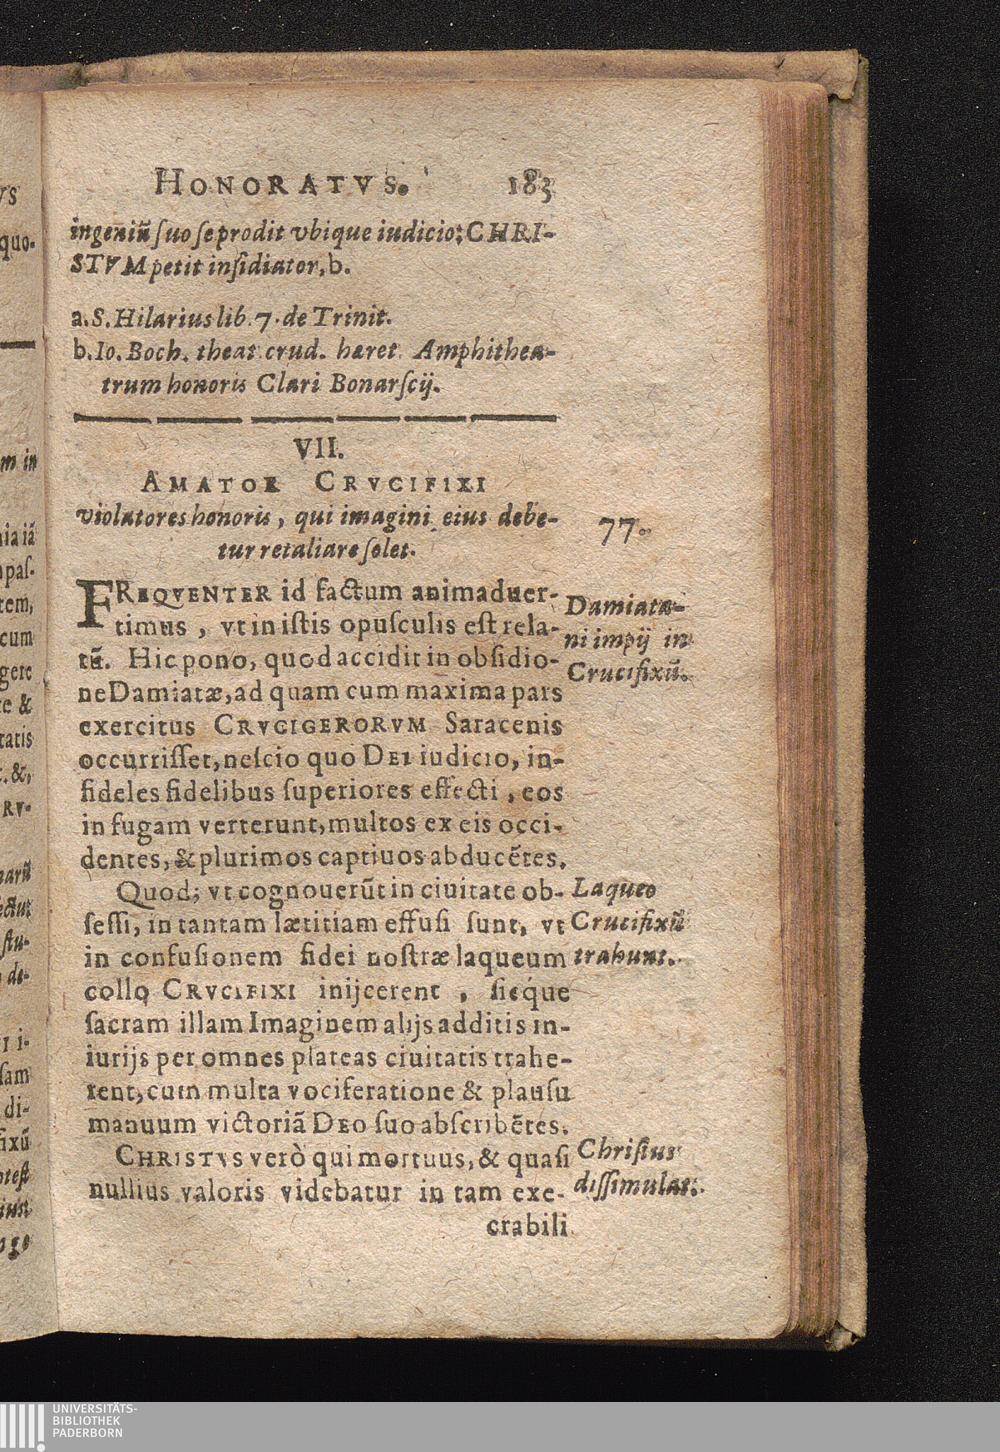 HONORATVS. 183
ingeniũ suo se prodit vbique iudicio; CHRI-
STVM petit insidiator, b.
a. S. Hilarius lib. 7. de Trinit.
b. Io. Boch. theat. crud. hæret. Amphithea-
trum honoris Clari Bonarscij.
VII.
AMATOR CRVCIFIXI
violatores honoris, qui imagini eius debe-
tur retaliare solet.
77.
FREQVENTER id factum animaduer-
timus, vt in istis opusculis est rela-
tũ. Hic pono, quod accidit in obsidio-
ne Damiatæ, ad quam cum maxima pars
exercitus CRVCIGERORVM Saracenis
occurrisset, nescio quo DEI iudicio, in-
fideles fidelibus superiores effecti, eos
in fugam verterunt, multos ex eis occi-
dentes, & plurimos captiuos abducẽtes.
Damiatæ-
ni impij in
Crucifixũ.
Quod; vt cognouerũt in ciuitate ob-
sessi, in tantam lætitiam effusi sunt, vt
in confusionem fidei nostræ laqueum
collo CRVCIFIXI inijcerent, sicque
sacram illam Imaginem alijs additis in-
iurijs per omnes plateas ciuitatis trahe-
rent, cum multa vociferatione & plausu
manuum victoriã DEO suo abscribẽtes.
Laqueo
Crucifixũ
trahunt.
CHRISTVS verò qui mortuus, & quasi
nullius valoris videbatur in tam exe-
crabili
Christus
dissimulat.
VS
quo-
m in
nia iã
pas-
tem,
cum
gere
te &
tatis
t. &,
RV-
stu-
de-
i-
sam
di-
fixũ
UNIVERSITÄTS-
BIBLIOTHEK
PADERBORN